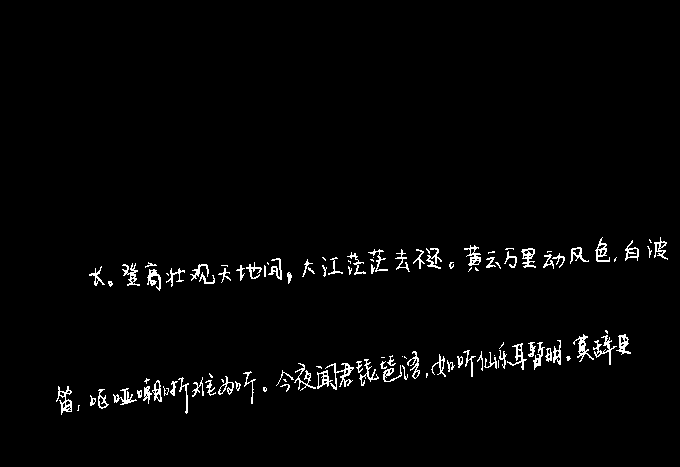 长。登高壮观天地间，大江茫茫去不还。黄云万里动风色，白波
笛，呕哑嘲哳难为听。今夜闻君琵琶语，如听仙乐耳暂明。莫辞更